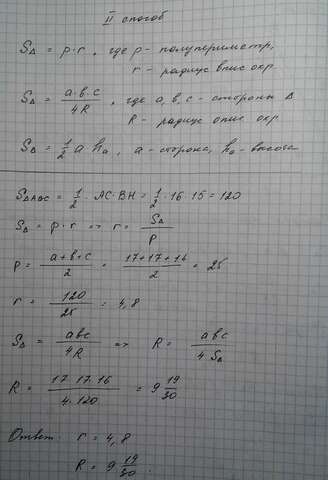 II способ
S△ = p · r, где p - полупериметр,
r - радиус впис окр.
S△ = a·b·c / 4R, где a, b, c - стороны △
R - радиус опис окр
S△ = 1/2 a hₐ, a - сторона, hₐ - высота
S△ABC = 1/2 · AC · BH = 1/2 · 16 · 15 = 120
S△ = p · r => r = S△ / p
p = a+b+c / 2 = 17+17+16 / 2 = 25
r = 120 / 25 = 4,8
S△ = abc / 4R => R = abc / 4·S△
R = 17·17·16 / 4·120 = 9 19/30
Ответ: r = 4,8
R = 9 19/30.